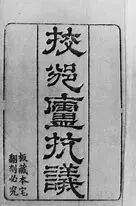 挍邠廬抗議
板藏本宅
翻刻必究